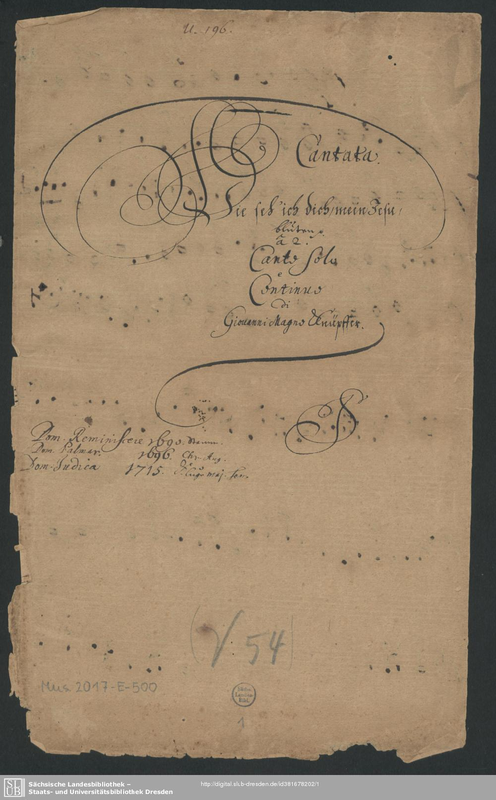 U. 196.
Cantata.
Wie seh' ich dich, mein Jesu,
blüten.
â 2.
Canto Solo
è
Continuo
di
Giovanni Magno Knüpffer.
Dom. Reminiscere 1690.
Dom. Palmar. 1696.
Dom. Judica 1715.
V. 54
Mus 2017-E-500
1
SLUB
Sächsische Landesbibliothek –
Staats- und Universitätsbibliothek Dresden
http://digital.slub-dresden.de/id381678202/1